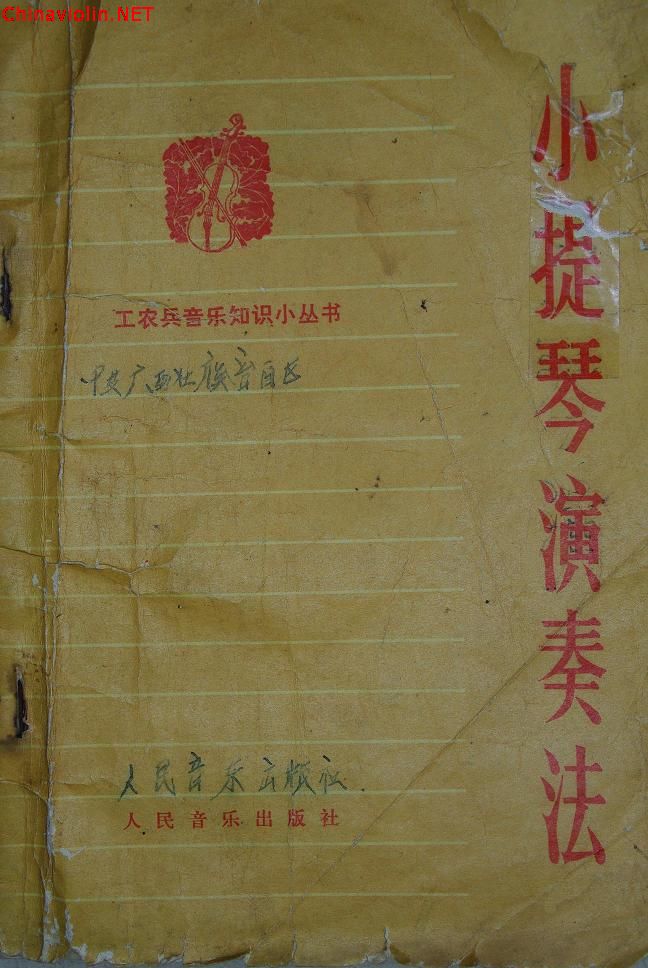 Chinaviolin.NET
小提琴演奏法
工农兵音乐知识小丛书
中央广西壮族音自区
人民音乐出版社
人民音乐出版社